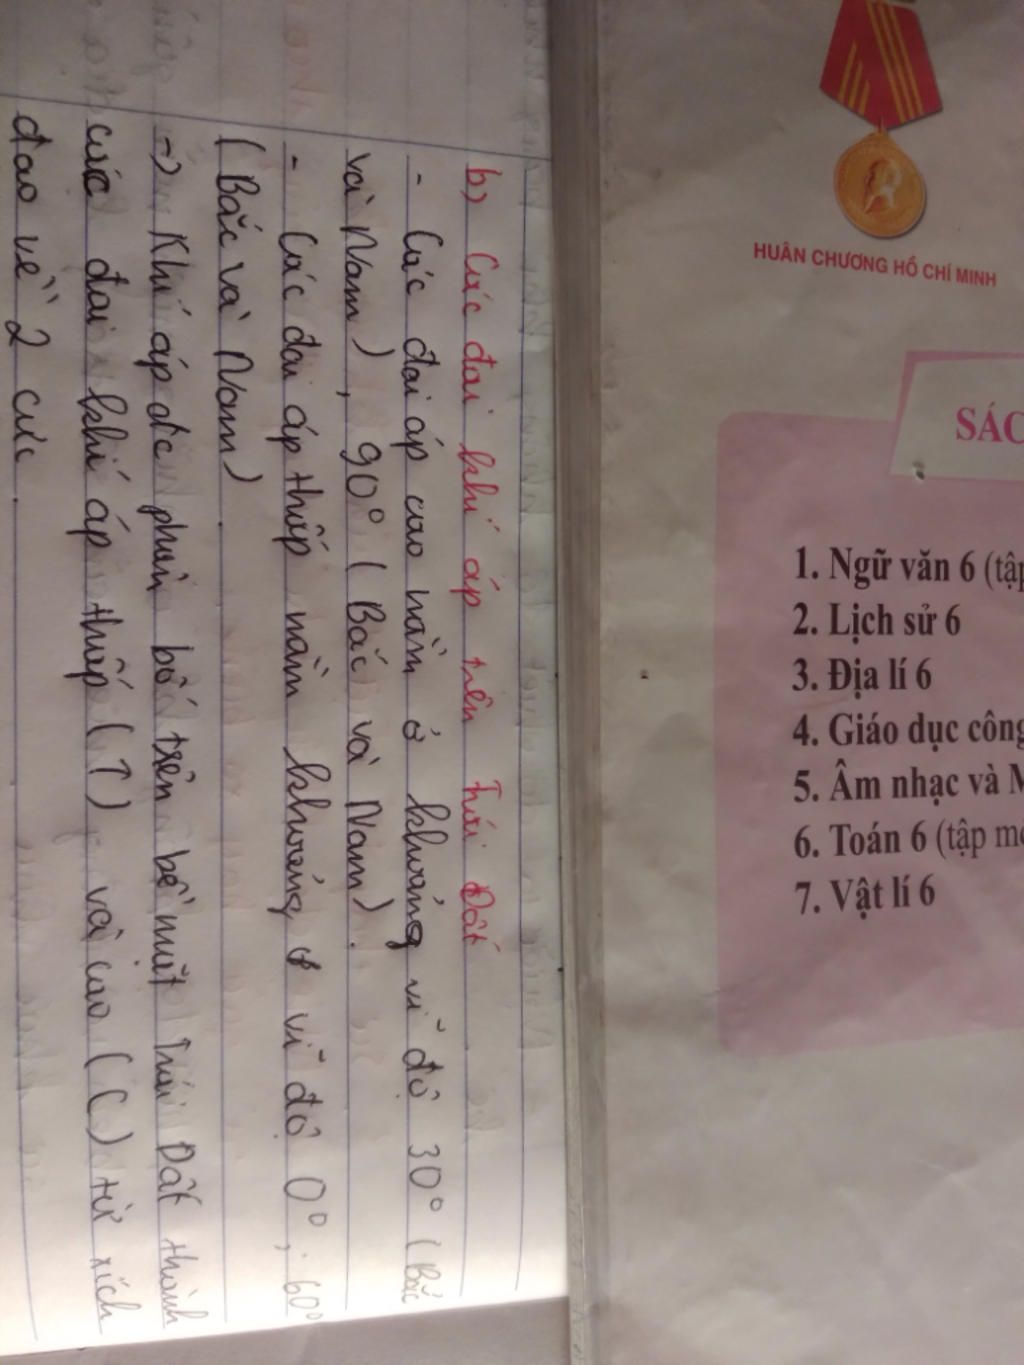 b) Các đai khí áp trên Trái Đất
- Các đai áp cao nằm ở khoảng vĩ độ 30° (Bắc
và Nam), 90° (Bắc và Nam).
- Các đai áp thấp nằm khoảng ở vĩ độ 0°, 60°
(Bắc và Nam)
-> Khí áp đc phân bố trên bề mặt Trái Đất thành
các đai khí áp thấp (T) và cao (C) từ xích
đạo về 2 cực.
HUÂN CHƯƠNG HỒ CHÍ MINH
SÁC
1. Ngữ văn 6 (tập
2. Lịch sử 6
3. Địa lí 6
4. Giáo dục công
5. Âm nhạc và M
6. Toán 6 (tập mộ
7. Vật lí 6